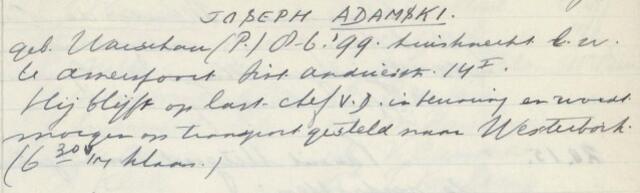 JOSEPH ADAMSKI.
geb. Warschau (P.) 8-6-'99. huisknecht l. w.
te Amersfoort St. Andriesstr. 14I.
Hij blijft op last chef V.D. in bewaring en wordt
morgen op transport gesteld naar Westerbork.
(6 30 v.m. klaar.)